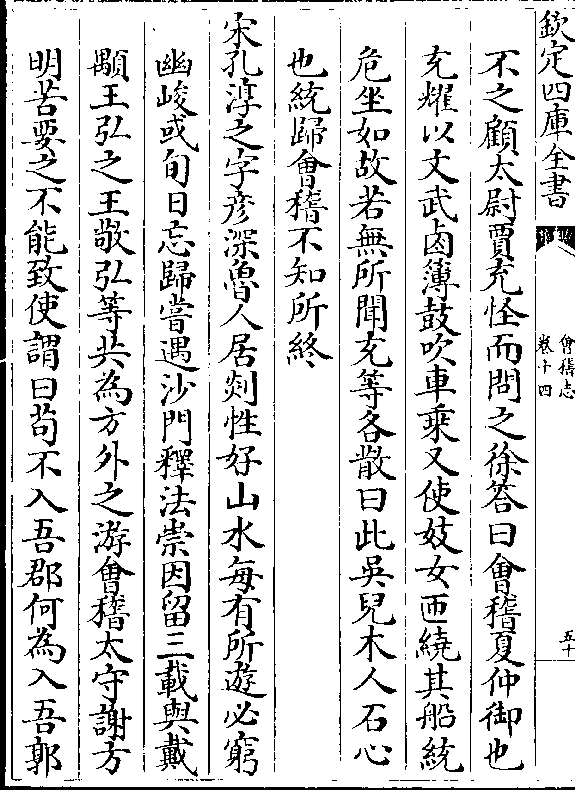 欽定四庫全書
會稽志
卷十四
五十
不之顧太尉賈充怪而問之徐答曰會稽夏仲御也
充耀以文武鹵簿鼓吹車乗又使妓女匝繞其船統
危坐如故若無所聞充等各散曰此吳兒木人石心
也統歸會稽不知所終
宋孔淳之字彦深魯人居剡性好山水每有所遊必窮
幽峻或旬日忘歸嘗遇沙門釋法崇因留三載與戴
顒王弘之王敬弘等共為方外之游會稽太守謝方
明苦要之不能致使謂曰苟不入吾郡何為入吾郭